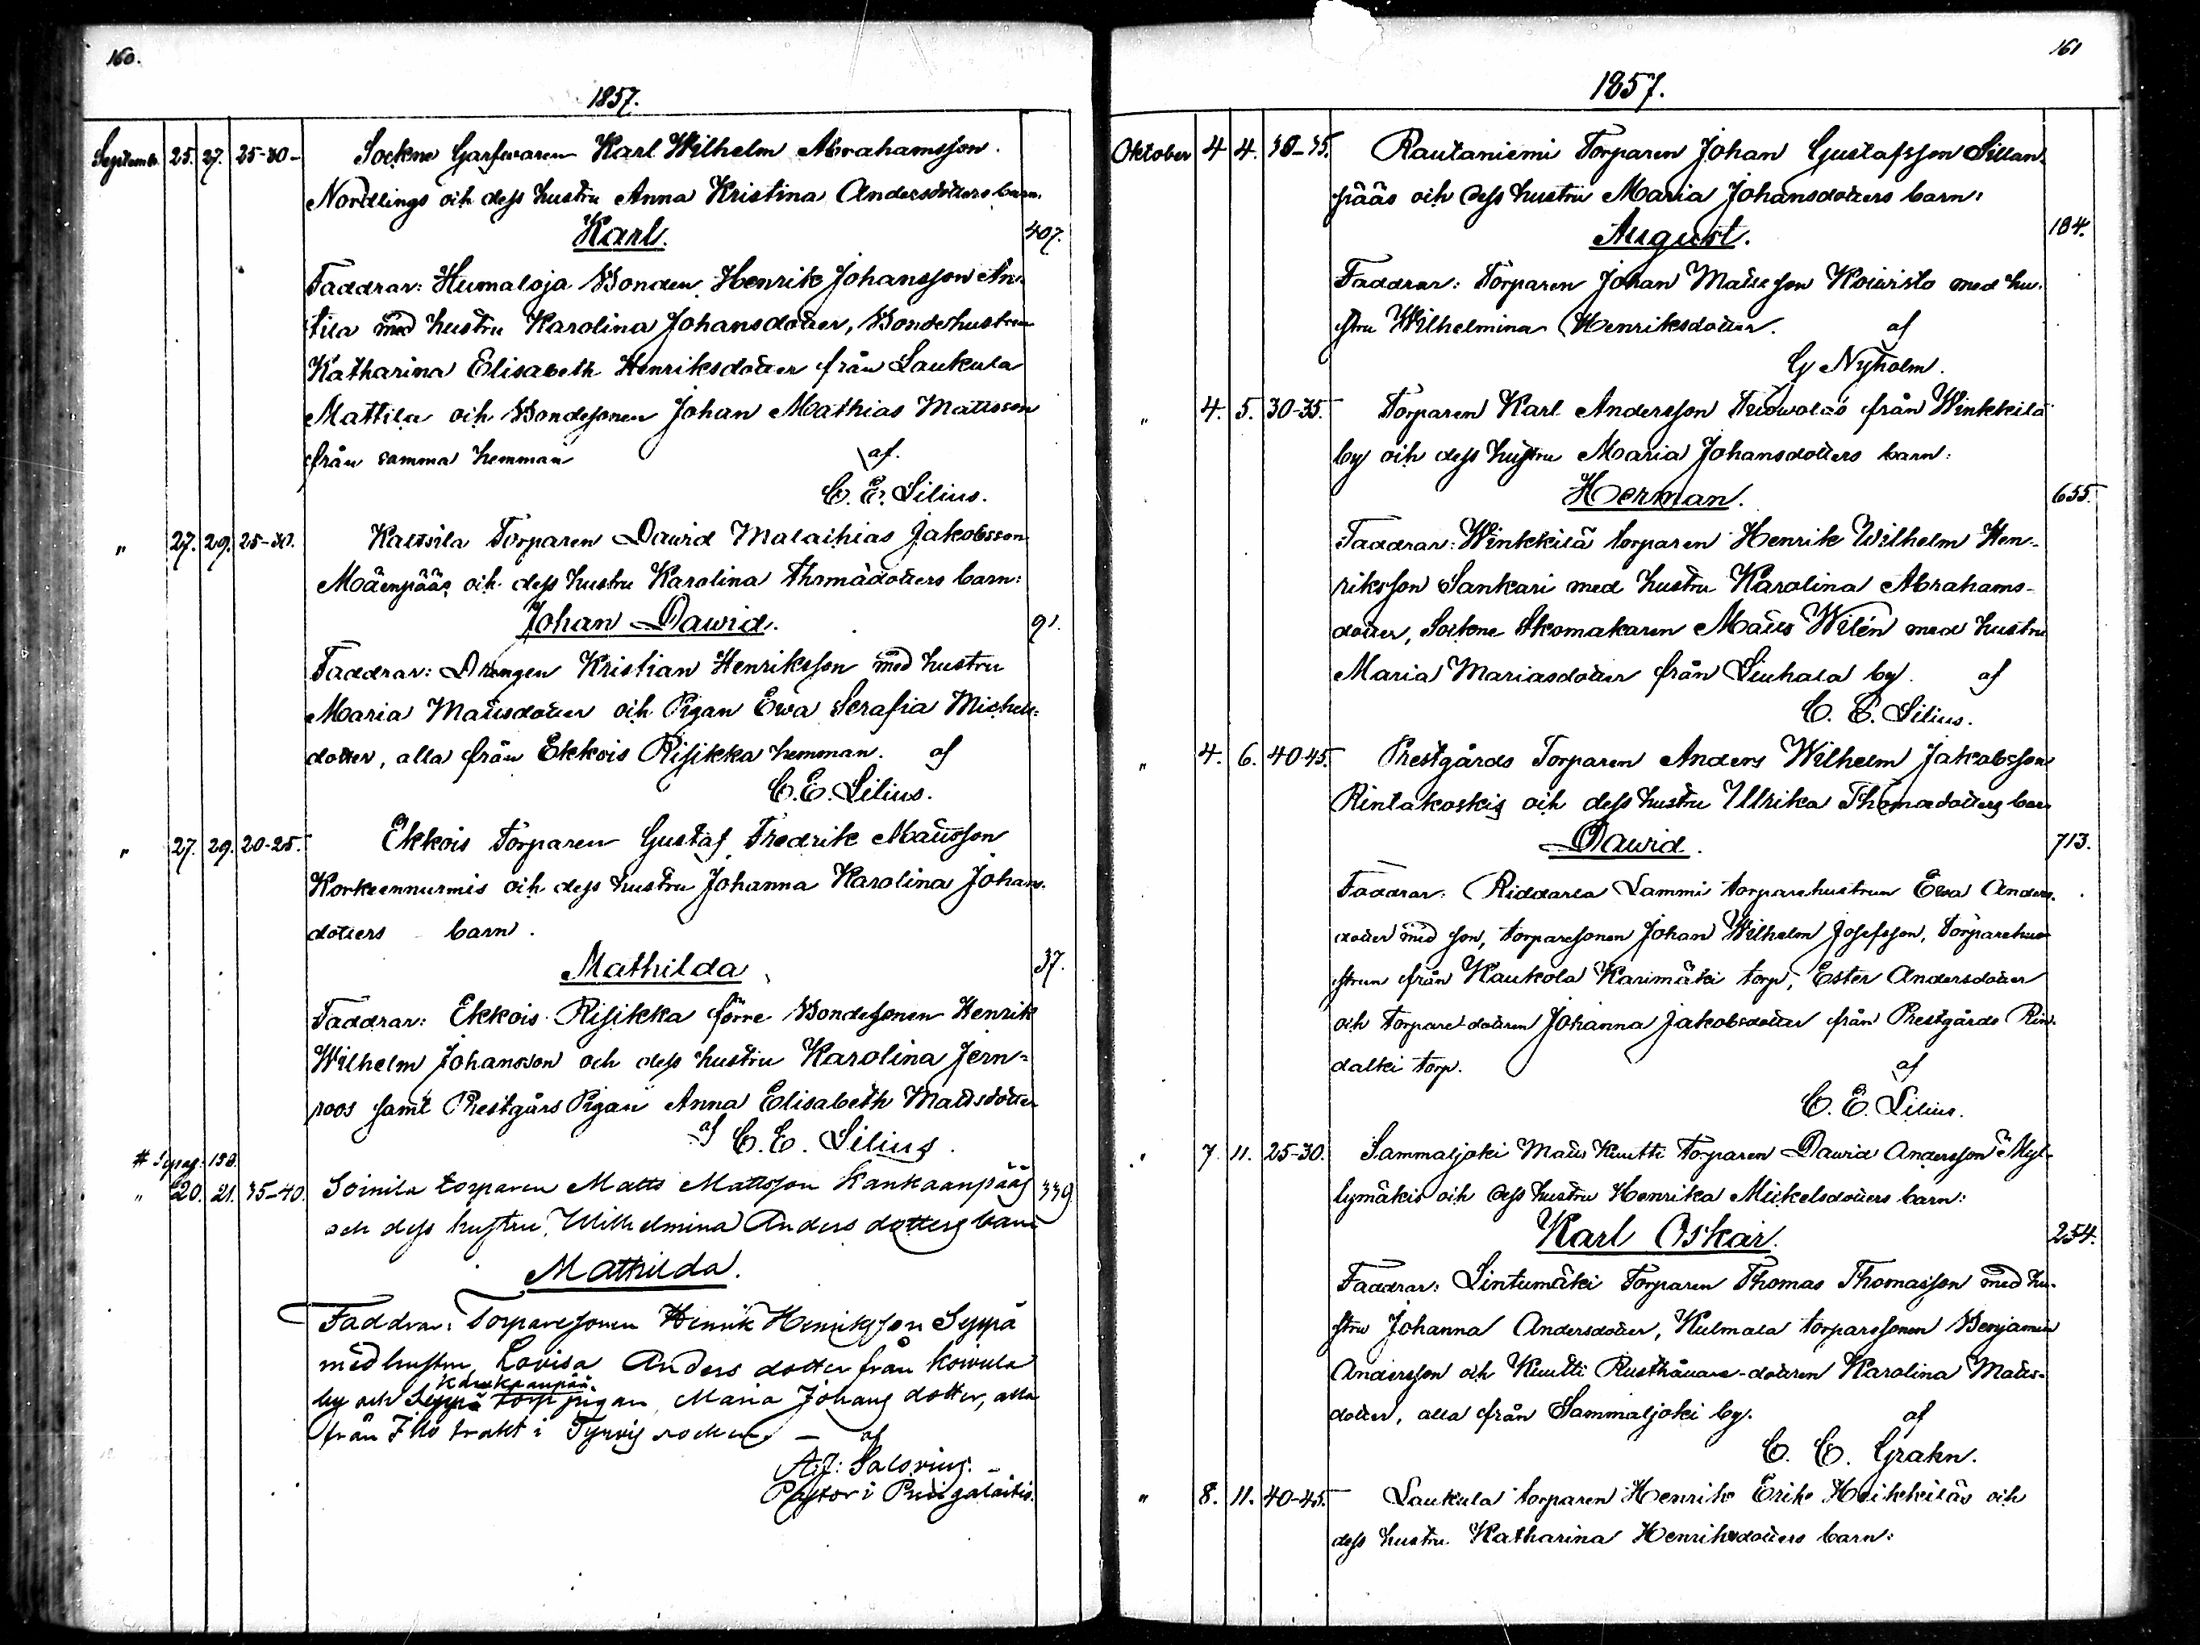 160.
1857.
Septemb. 25. 27. 25-30- Sockne Garfvaren Karl Wilhelm Abrahamsson
Nordlings och dess hustru Anna Kristina Andersdotters barn.
Karl. 407.
Faddrar: Humaloja Bonden Henrik Johansson An-
tila med hustru Karolina Johansdotter, Bondehustrun
Katharina Elisabeth Henriksdotter från Laukula
Mattila och Bondesonen Johan Mathias Mattsson
från samma hemman af.
C. E. Lilius.
" 27. 29. 25-30. Kaltsila Torparen David Malachias Jakobsson
Mäenpääs och dess hustru Karolina Thomädotters barn:
Johan Dawid. 91.
Faddrar: Drängen Kristian Henriksson med hustru
Maria Mattsdotter och Pigan Ewa Serafia Michels-
dotter, alla från Ekkois Risikka hemman. af
C. E. Lilius.
" 27. 29. 20-25. Ekkois Torparen Gustaf Fredrik Mattsson
Korkeennurmis och dess hustru Johanna Karolina Johans-
dotters barn.
Mathilda 37.
Faddrar: Ekkois Risikka förre Bondesonen Henrik
Wilhelm Johansson och dess hustru Karolina Jern-
roos samt Prestgårs Pigan Anna Elisabeth Mattsdotter
af C. E. Lilius.
# 158.
" 20. 21. 35-40. Soinila torparen Matts Mattsson Kankaanpääs 339
och dess hustru Wilhelmina Anders dotters barn
Mathilda.
Faddrar: Torparesonen Henrik Henriksson Seppä
med hustru Lovisa Anders dotter från Koivula
Kankaanpää
by och Seppä torp pigan Maria Johans dotter, alla
från Illo trakt i Tyrvis socken – af
A.J: Salovius.
Pastor i Punigalaitis.
161
1857.
Oktober 4 4. 30-35. Rautaniemi Torparen Johan Gustafsson Sillan-
pääs och dess hustru Maria Johansdotters barn:
August. 184.
Faddrar: Torparen Johan Mattsson Koivisto med hu-
stru Wilhelmina Henriksdotter. af
G Nyholm.
" 4. 5. 30-35. Torparen Karl Andersson från Winkkilä
by och dess hustru Maria Johansdotters barn:
Herman. 655.
Faddrar: Winkkilä torparen Henrik Wilhelm Hen-
riksson Sankari med hustru Karolina Abrahams-
dotter, Sockne Skomakaren Matts Wilén med hustru
Maria Mariasdotter från Liuhala by. af
C. E. Lilius.
" 4. 6. 40-45. Prestgårds Torparen Anders Wilhelm Jakobsson
Rintakoskis och dess hustru Ullrika Thomædotters barn
Dawid. 713.
Faddrar: Riddarla Lammi torparehustrun Ewa Anders-
dotter med son, torparesonen Johan Wilhelm Josefsson, Torparehu-
strun från Kaukola Karimäki torp, Ester Andersdotter
och Torpare-dottren Johanna Jakobsdotter från Prestgårds Rin-
dalki torp. af
C. E. Lilius.
" 7. 11. 25-30. Sammaljoki Matts Knutti Torparen Dawid Andersson Myl-
lymäkis och dess hustru Henrika Mickelsdotters barn:
Karl Oskar. 254.
Faddrar: Lintumäki Torparen Thomas Thomasson med hu-
stru Johanna Andersdotter, Kulmala torparesonen Benjamin
Andersson och Knutti Rusthållare-dottren Karolina Matts-
dotter, alla från Sammaljoki by. af
C. E. Grahn.
" 8. 11. 40-45. Laukula torparen Henrik Erik Heikkiläs och
dess hustru Katharina Henriksdotters barn: